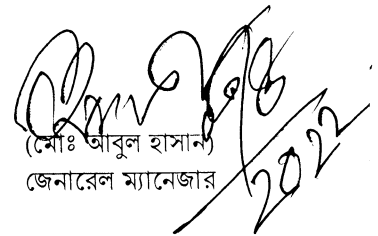 (মোঃ আবুল হাসান)
জেনারেল ম্যানেজার
2022